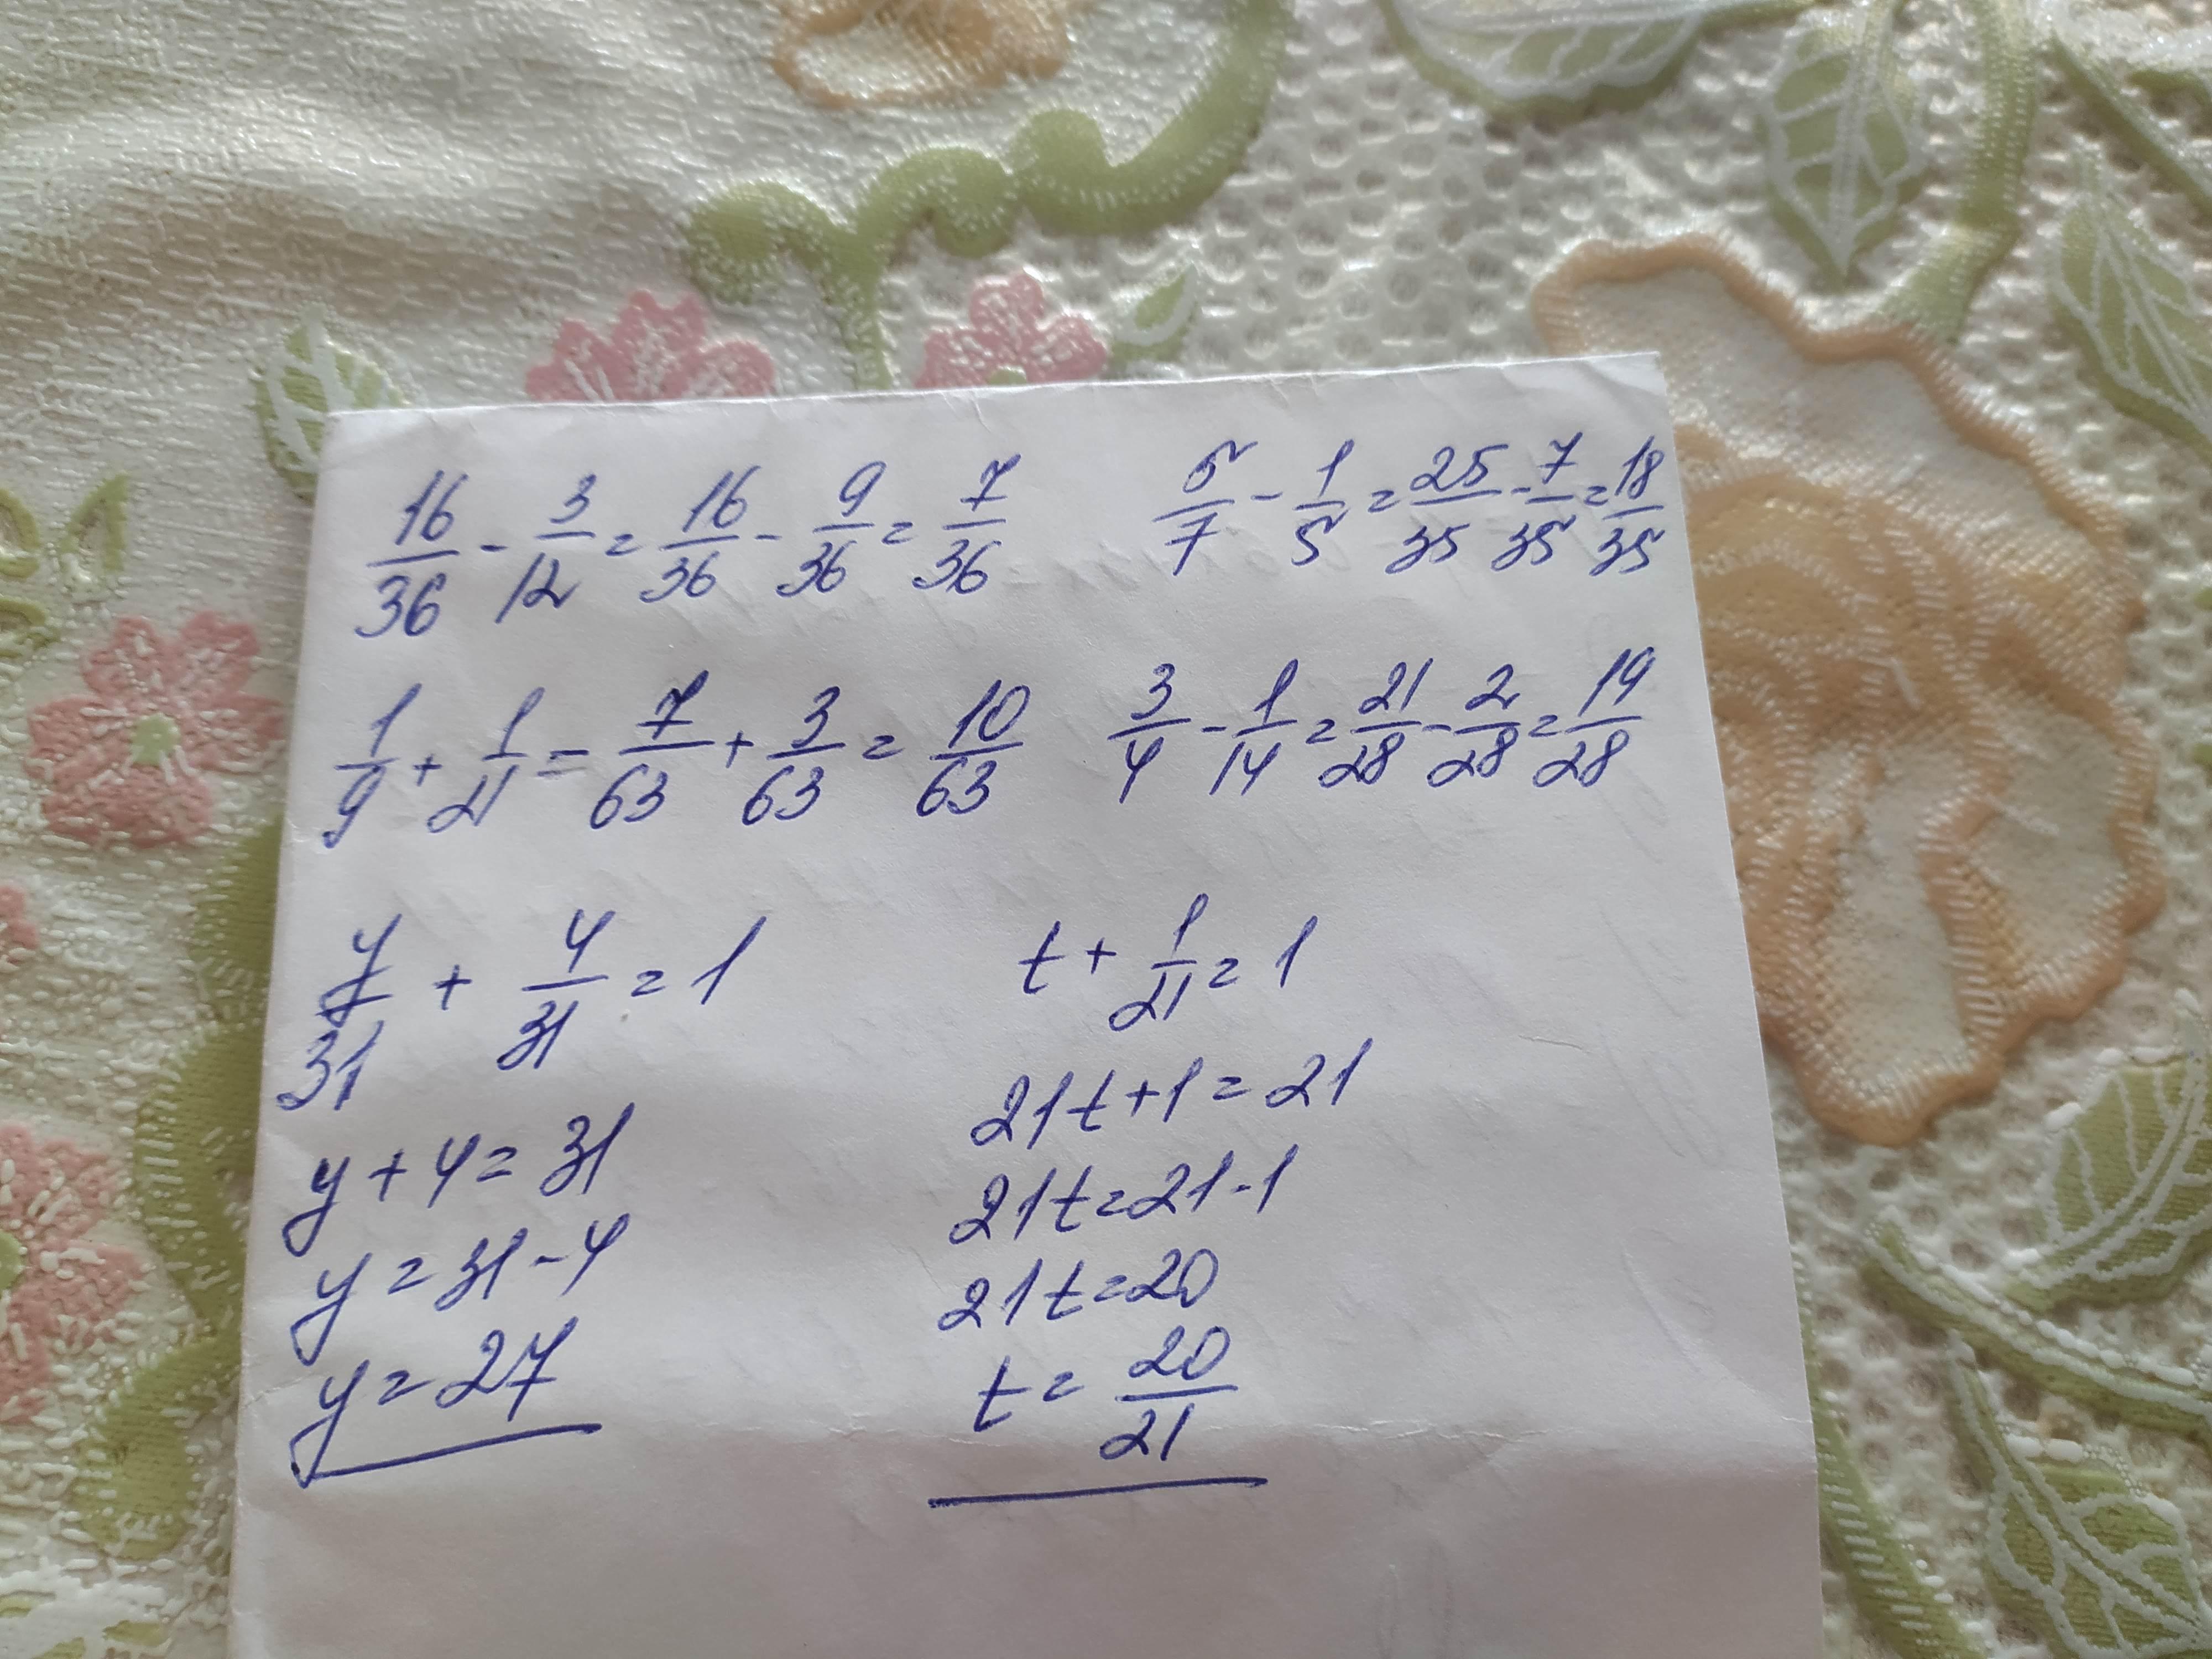 16/36 - 3/12 = 16/36 - 9/36 = 7/36
5/7 - 1/5 = 25/35 - 7/35 = 18/35
1/9 + 1/21 = 7/63 + 3/63 = 10/63
3/4 - 1/14 = 21/28 - 2/28 = 19/28
y/31 + 4/31 = 1
y + 4 = 31
y = 31 - 4
y = 27
t + 1/21 = 1
21t + 1 = 21
21t = 21 - 1
21t = 20
t = 20/21